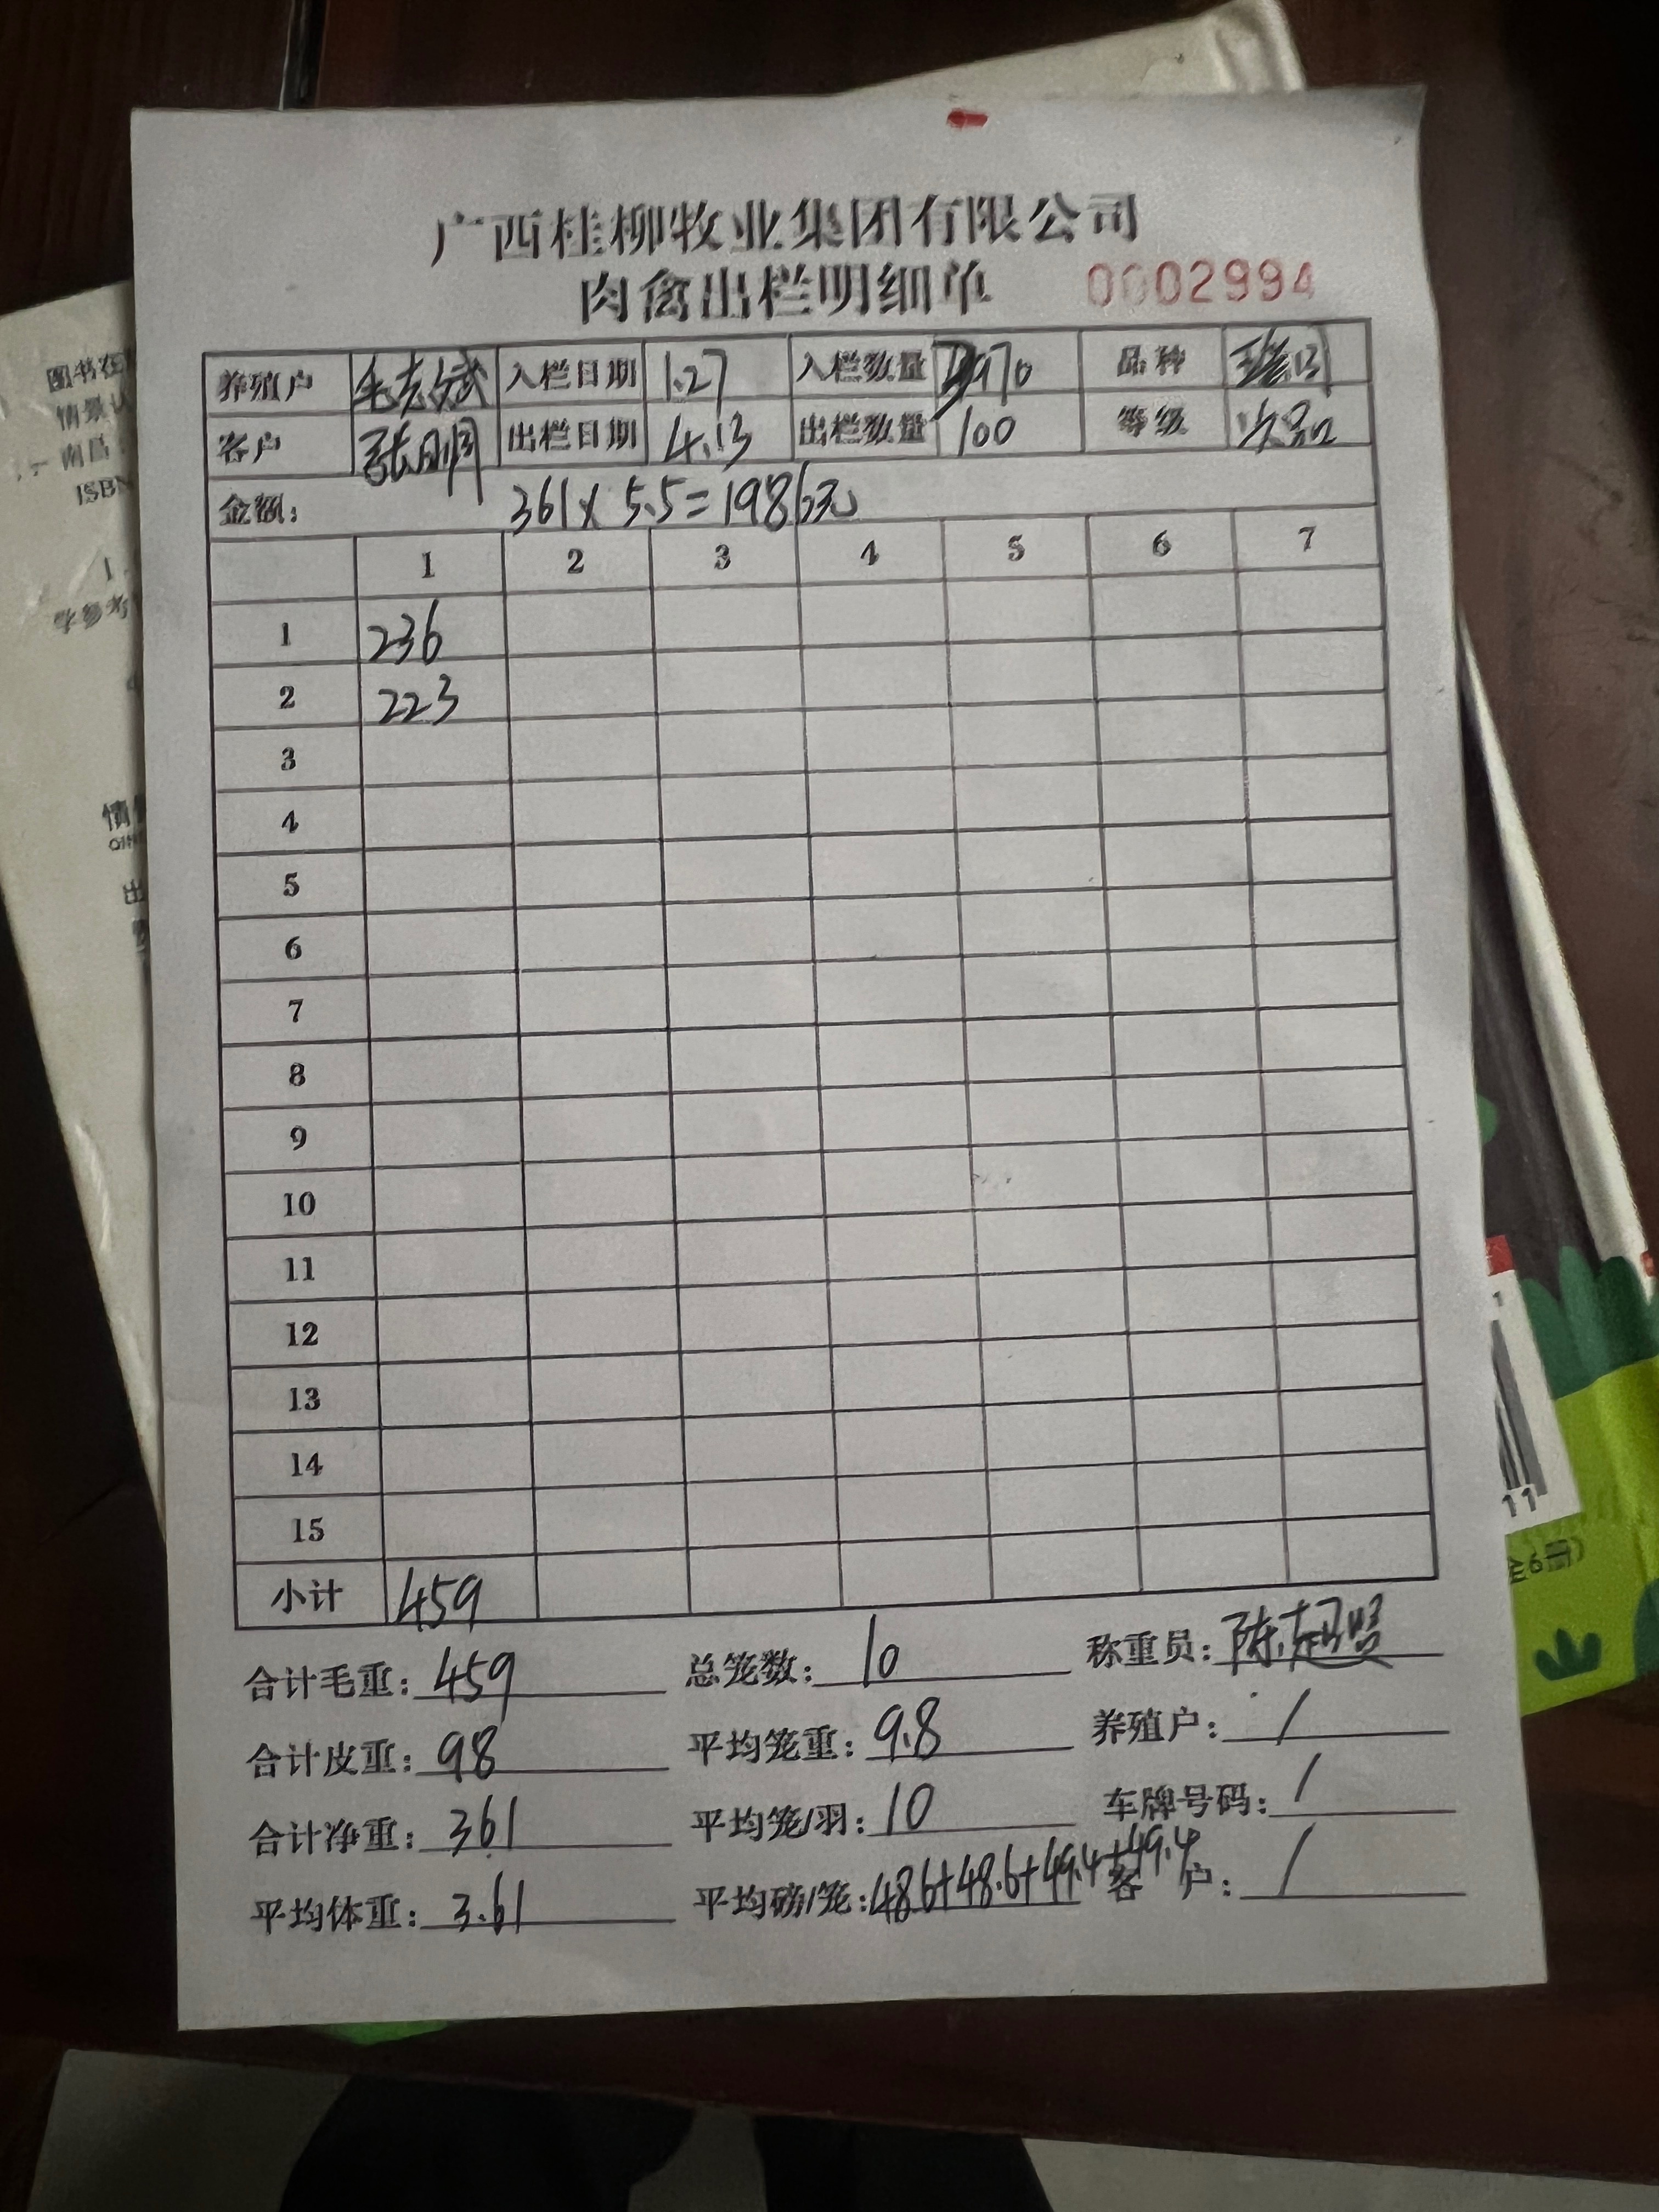 广西桂柳牧业集团有限公司
肉禽出栏明细单 0002994
养殖户 入栏日期 1.27 入栏数量 品种
客户 张明 出栏日期 4.13 出栏数量 100 等级 次品
金额: 361x5.5=1986元
1 2 3 4 5 6 7
1 236
2 223
3
4
5
6
7
8
9
10
11
12
13
14
15
小计 459
合计毛重: 459 总笼数: 10 称重员: 陈超
合计皮重: 98 平均笼重: 9.8 养殖户: /
合计净重: 361 平均笼/羽: 10 车牌号码: /
平均体重: 3.61 平均磅/笼: 48.6+48.6+49.4+49.4 客户: /
图书在
南昌
ISBN
学参考
情
出
11